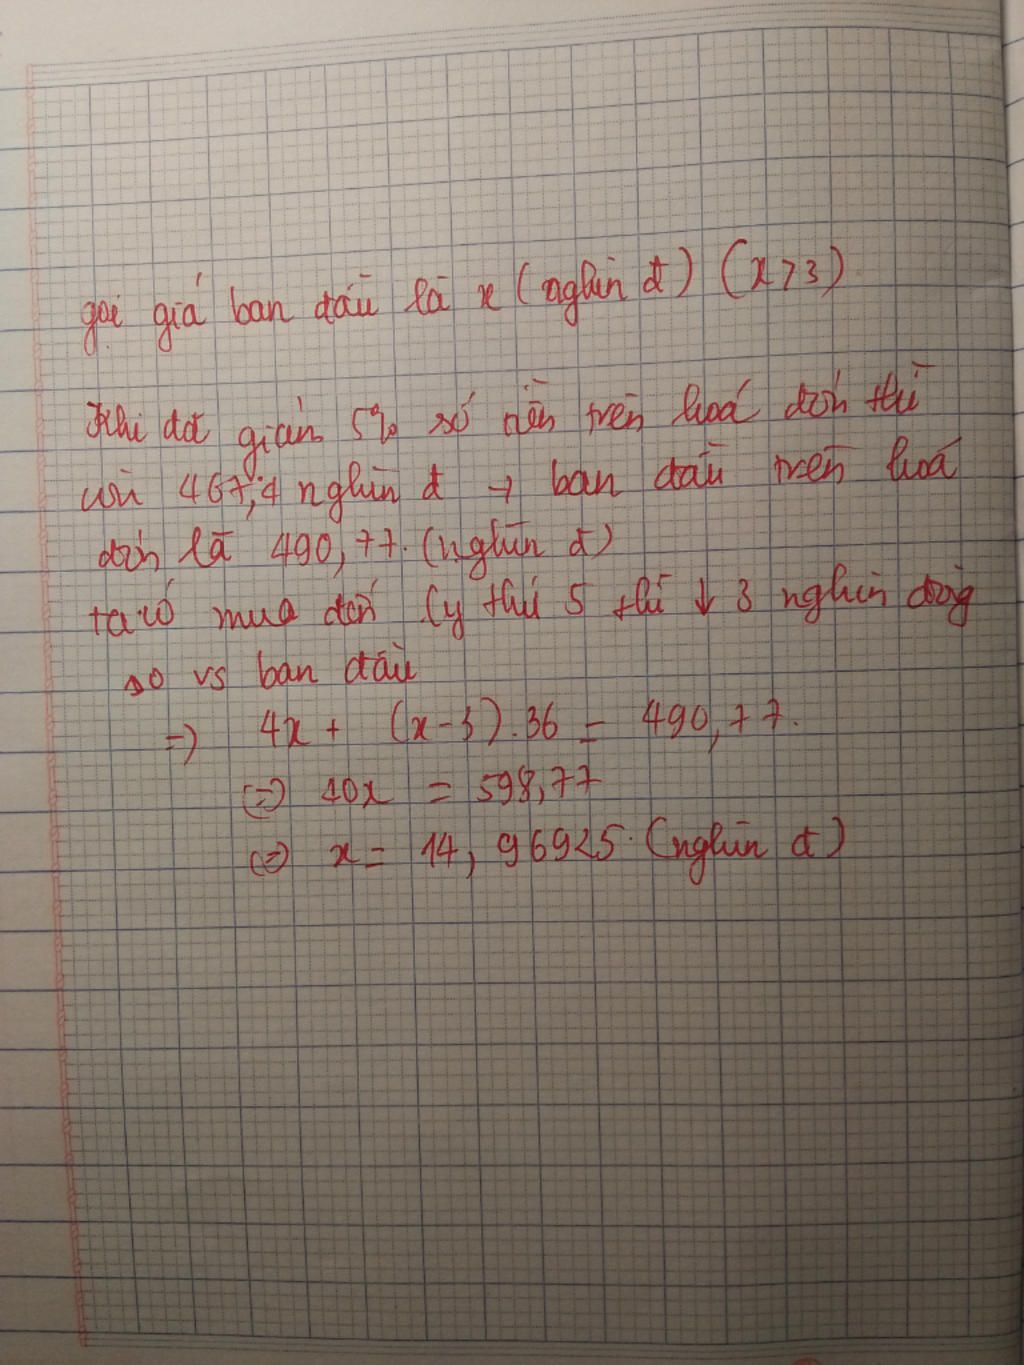 gọi giá ban đầu là x (nghìn đ) (x>3)
Khi đã giảm 5% số tiền trên hoá đơn thì
còn 467,4 nghìn đ → ban đầu trên hoá
đơn là 490,77. (nghìn đ)
ta có mua đến ly thứ 5 thì ↓ 3 nghìn đồng
so vs ban đầu
=> 4x + (x-3).36 = 490,77.
(=) 40x = 598,77
(=) x = 14,96925. (nghìn đ)